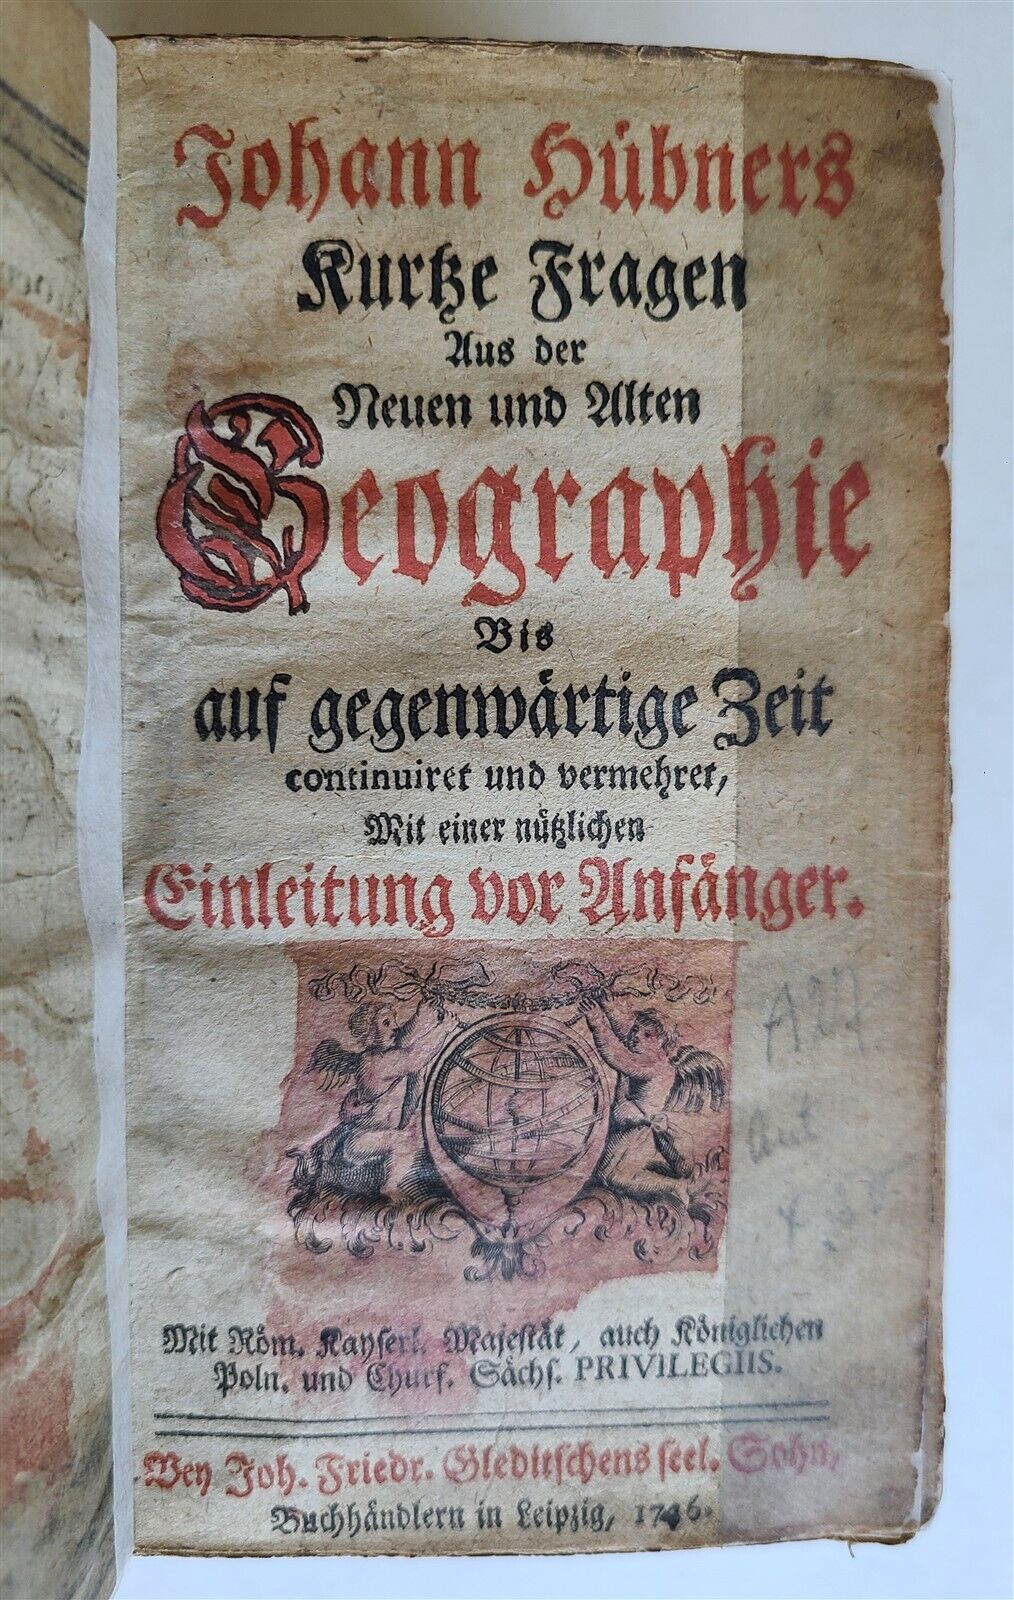 Johann Hübners
Kurtze Fragen
Aus der
Neuen und Alten
Geographie
Bis
auf gegenwärtige Zeit
continuiret und vermehret,
Mit einer nützlichen
Einleitung vor Anfänger.
Mit Röm. Kayserl. Majestät, auch Königlichen
Poln. und Churf. Sächs. PRIVILEGIIS.
Bey Joh. Friedr. Gleditschens seel. Sohn,
Buchhändlern in Leipzig,